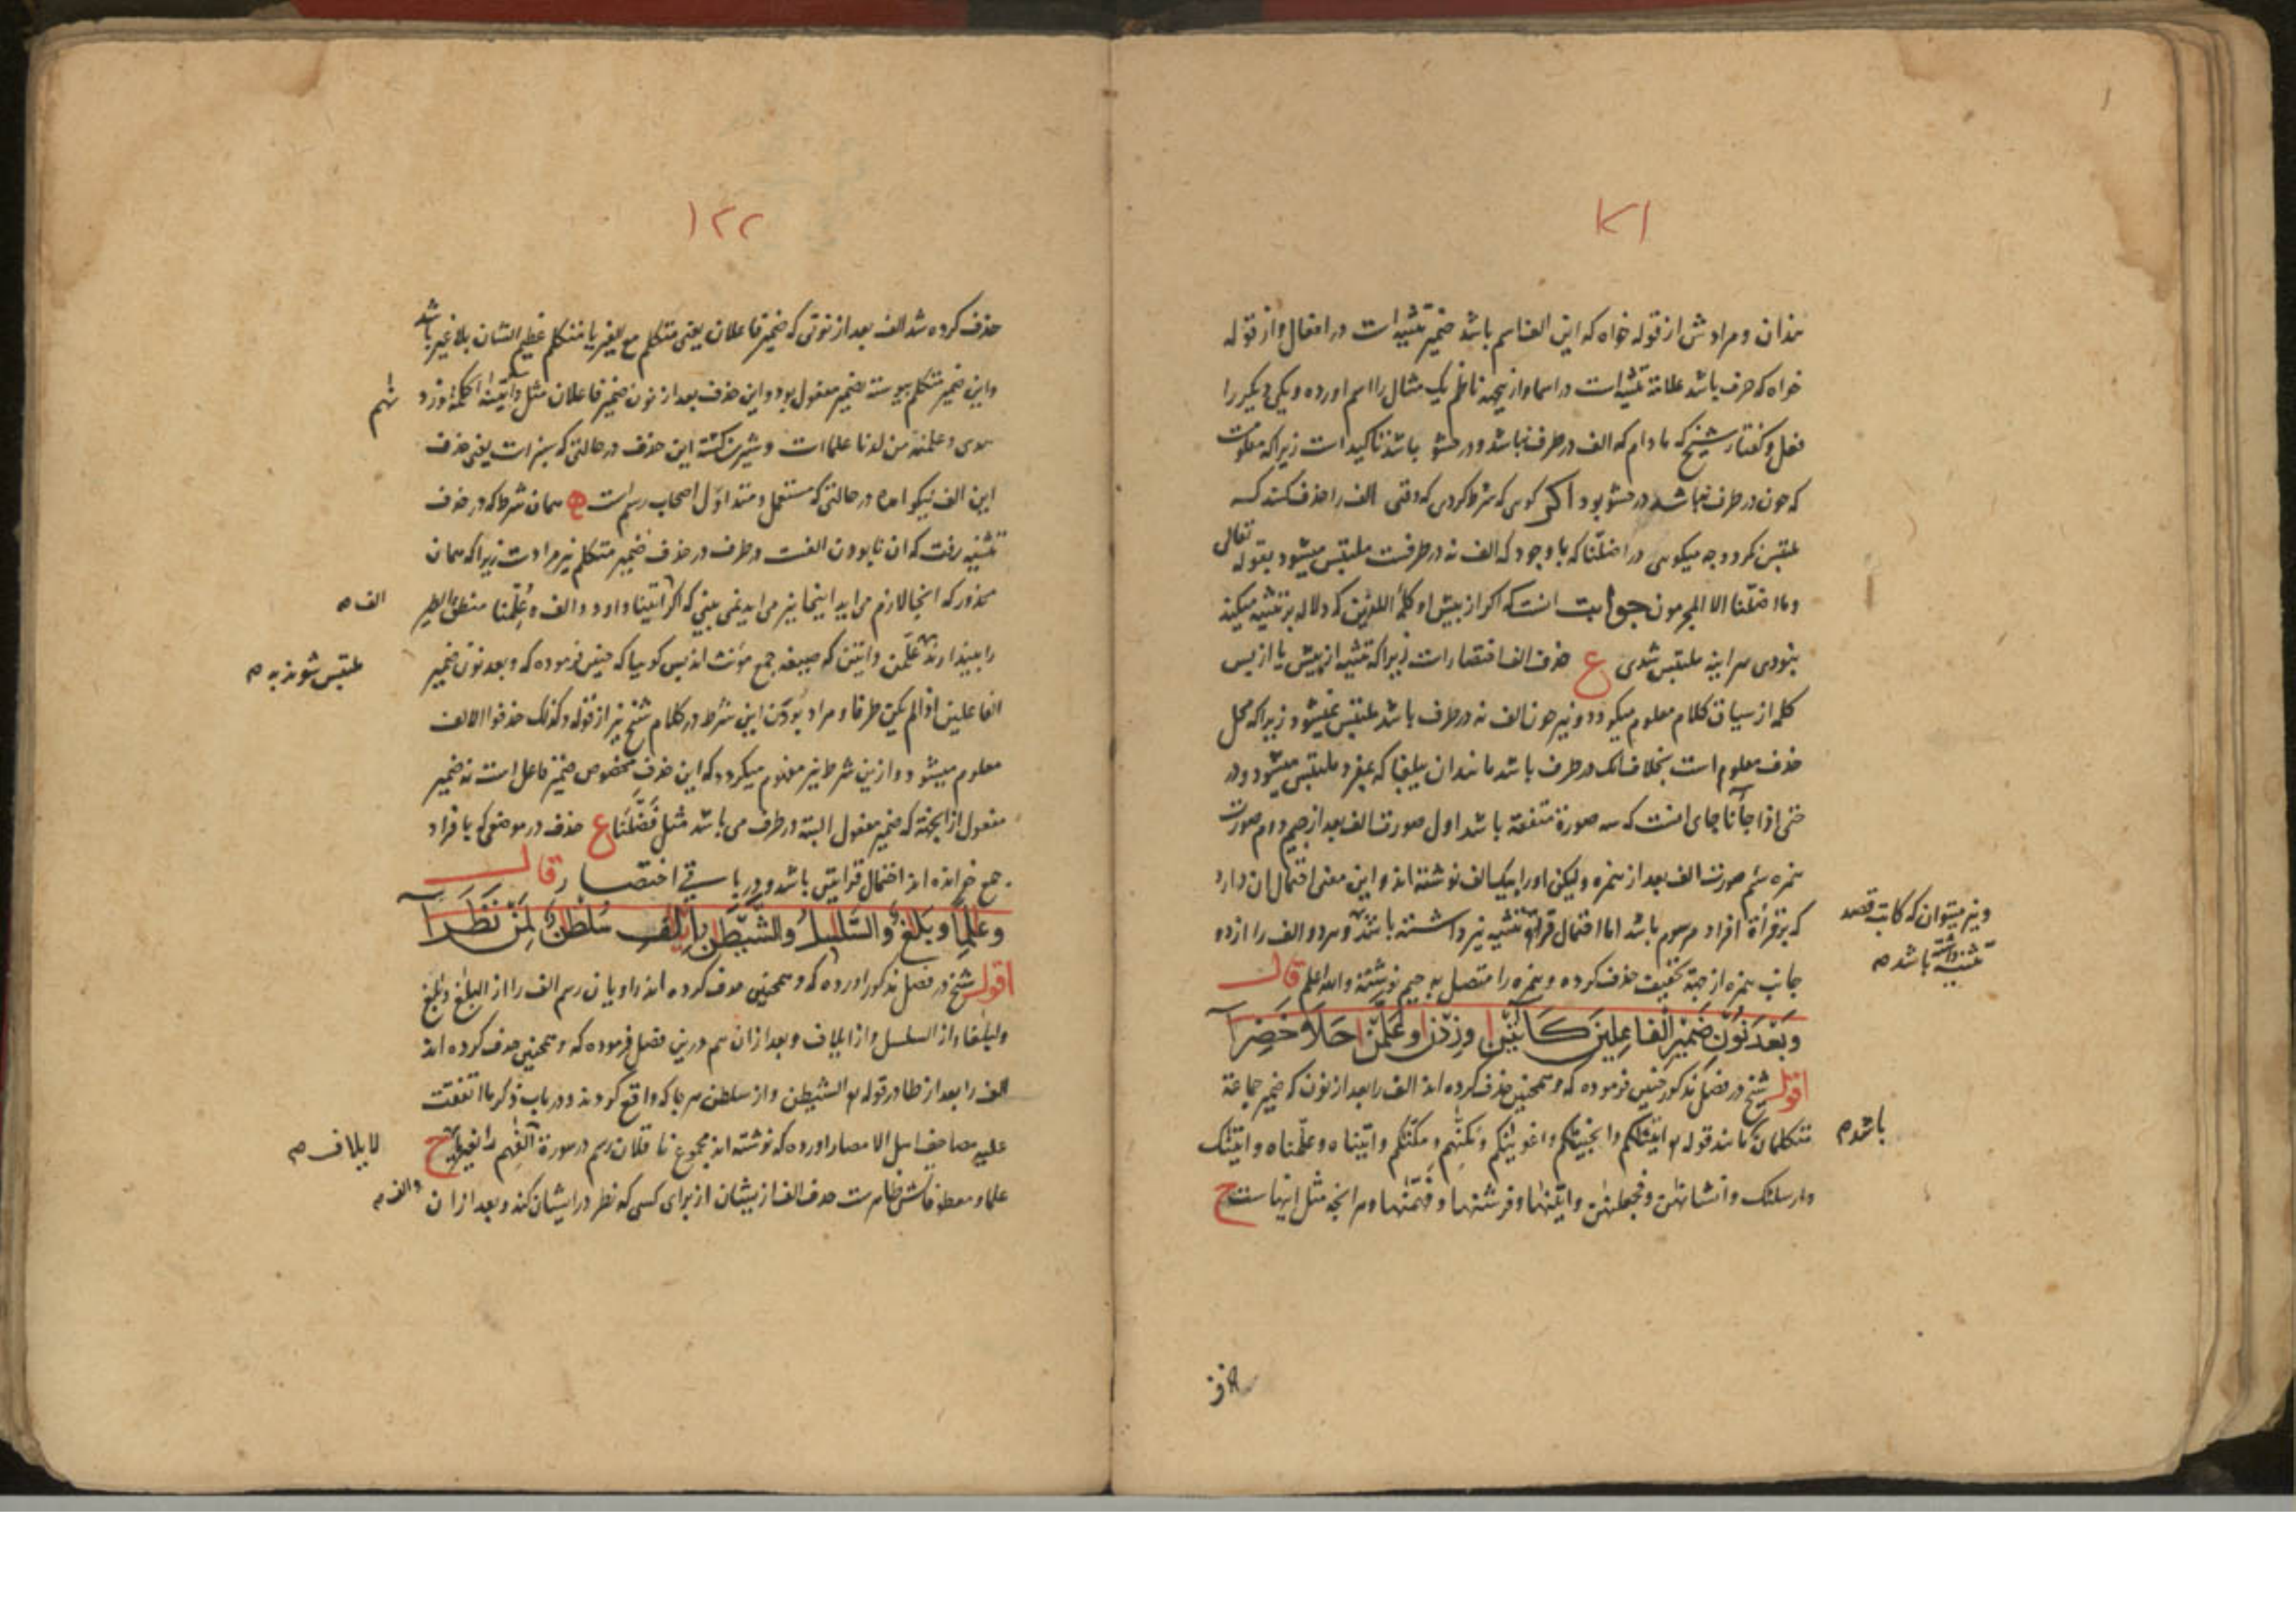 ۱۲۱
نذان و مرادش از قوله خواه که این الف اسم باشد ضمیر تثنیه است در افعال و از قوله
خواه که حرف باشد علامة تثنیه است در اسما و ازیجهة ناظم یک مثال را اسم اورده و یکی دیکر را
فعل و کفتار شیخ که مادام که الف در طرف نباشد و در حشو باشد تاکید است زیرا که معلومست
که چون در طرف نباشد در حشو بود اکر کوی که شرط کردی که وقتی الف را حذف کنند که
ملتبس نکردد چه میکوی در اضلّنا که باوجود که الف نه در طرفست ملتبس میشود بقوله تعالی
وما اضلّنا الا المجرمون جوابت انست که اکر از پیش او کلمۀ اللذین که دلاله بر تثنیه میکند
نبودی هر اینه ملتبس شدی ع حذف الف اختصار است زیرا که تثنیه از پیش یا از پس
کلمه از سیاق کلام معلوم میکردد و نیز چون الف نه در طرف باشد ملتبس نمیشود زیرا که محل
حذف معلوم است بخلاف انک در طرف باشد مانند ان یبلغا که بمفرد ملتبس میشود و در
حتی اذا جآنا جای انست که سه صورة متفقه باشد اول صورت الف بعد از جیم دوم صورت
همزه سئم صورت الف بعد از همزه ولیکن اورا بیک الف نوشته اند و این معنی احتمال ان دارد
که بر قرأة افراد مرسوم باشد اما احتمال قرأة تثنیه نیز داشته باشد و هر دو الف را از دو
ونیز میتوان که کاتب قصد تثنیه داشته باشد صح
جانب همزه از جهة تخفیف حذف کرده و همزه را متصل به جیم نوشته والله اعلم قال
وَبَعْدَ نُوْنِ ضَمِيْرِ الْفَاعِلِيْنَ كَآتَيْنَا وَزِدْنَا وَعَلَّمْنَا حَلَا خَضِرَا
اقول شیخ در فصل مذکور چنین فرموده که و همچنین حذف کرده اند الف را بعد از نون که ضمیر جماعة
متکلمان مانند قوله تع انجینکم و اغوینکم و مکنّهم و مکنّکم و اتیناه و علّمناه و اتینک
باشد صح
و ارسلنک و انشانهن و فجعلنهن و اتینها و فرشنها و ففهمنها و هر انچه مثل اینهاست ح
حذف
۱۲۲
حذف کرده شد الف بعد از نونی که ضمیر فاعلان یعنی متکلم مع الغیر یا متکلم عظیم الشان بلا غیر باشد
و این ضمیر متکلم پیوسته بضمیر مفعول بود و این حذف بعد از نون ضمیر فاعلان مثل و اتینه الحکمة و زد
نهم
هدی و علمنه من لدنا علما است و شیرین کشته این حذف در حالتی که سبز است یعنی حذف
این الف نیکو امده در حالتی که مستعمل و متداول اصحاب رسم است ه همان شرط که در حذف
تثنیه رفت که ان نابودن الفست در طرف در حذف ضمیر متکلم نیز مراد ست زیرا که همان
محذور که انجا لازم می اید اینجا نیز می اید نمی بینی که اکر اتینا داود و الف و عُلّمنا منطق الطیر
الف صح
را بیندازند علّمن و اتین که صیغه جمع مؤنث اند پس کوییا که چنین فرموده که وبعد نون ضمیر
ملتبس شوند به صح
الفاعلین اذا لم یکن طرفا و مراد بودن این شرط در کلام شیخ نیز از قوله و کذلک حذفوا الالف
معلوم میشود و ازین شرط نیز مفهوم میکردد که این حذف مخصوص ضمیر فاعل است نه ضمیر
مفعول از انجهة که ضمیر مفعول البته در طرف می باشد مثل فَضَّلَنا ع حذف در موضعی که با فراد
و جمع خوانده اند احتمال قراتین باشد و در باقی اختصار قال
وَعَالِمًا وَبَلَاغٌ وَالسَّلَاسِلُ وَالشَّيْطٰنُ اِيْلَافِ سُلْطٰنٌ لِمَنْ نَظَرَا
اقول شیخ در فصل مذکور اورده که و همچنین حذف کرده اند راویان رسم الف را از البلغ و بلغ
و لبلغا و از السلسل و از ایلاف و بعد از ان هم درین فصل فرموده که و همچنین حذف کرده اند
الف را بعد از طا در قوله تع الشیطن و از سلطن هر جا که واقع کردند و در باب ذکر ما اتفقت
علیه مصاحف اهل الامصار اورده که نوشته اند مجموع ناقلان رسم در سورة الفهم را بغیر یا ح
لایلاف صح
علما و معطوفاتش ظاهرست حذف الف از یشان از برای کسی که نظر در ایشان کند و بعد از ان
والف صح